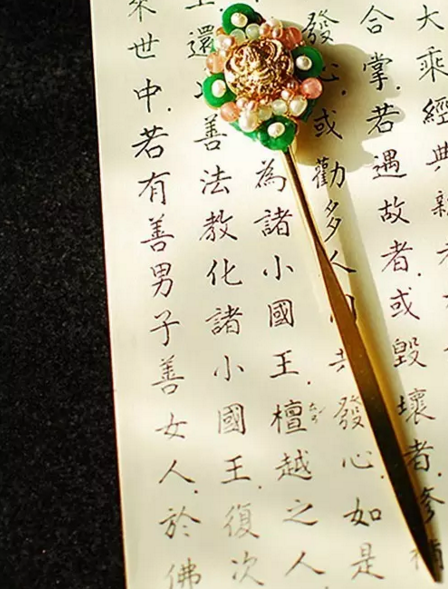 大乘經典
合掌.若遇故者.或毀壞者.修補
發心.或勸多人共發心.如是
為諸小國王.檀越之人
還善法教化諸小國王.復次
來世中.若有善男子善女人.於佛